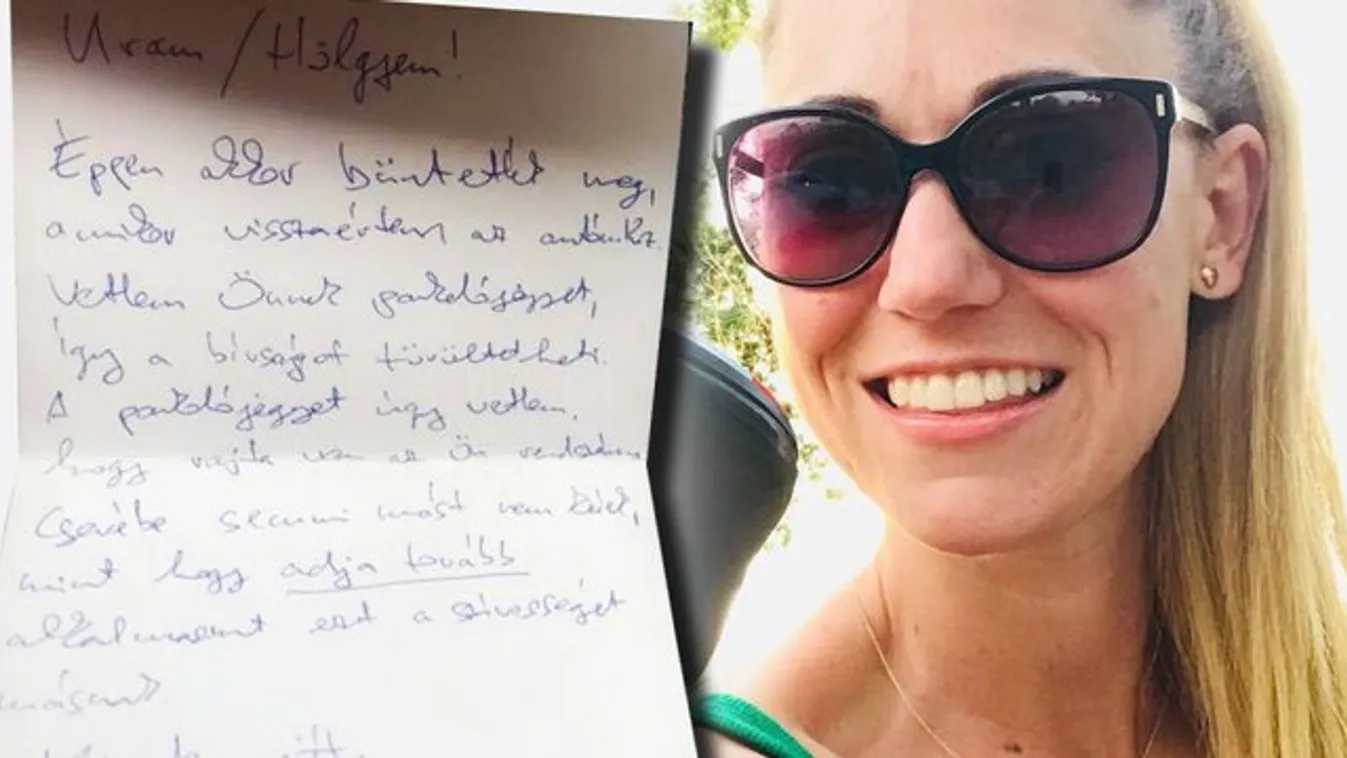 Uram / Hölgyem!
Éppen akkor büntették meg,
amikor visszaértem az autómhoz.
Vettem Önnek parkolójegyet,
így a bírságot töröltetheti.
A parkolójegyet úgy vettem,
hogy rajta van az Ön rendszáma
Cserébe semmi mást nem kérek,
mint hogy adja tovább
alkalmasint ezt a szívességet
másnak